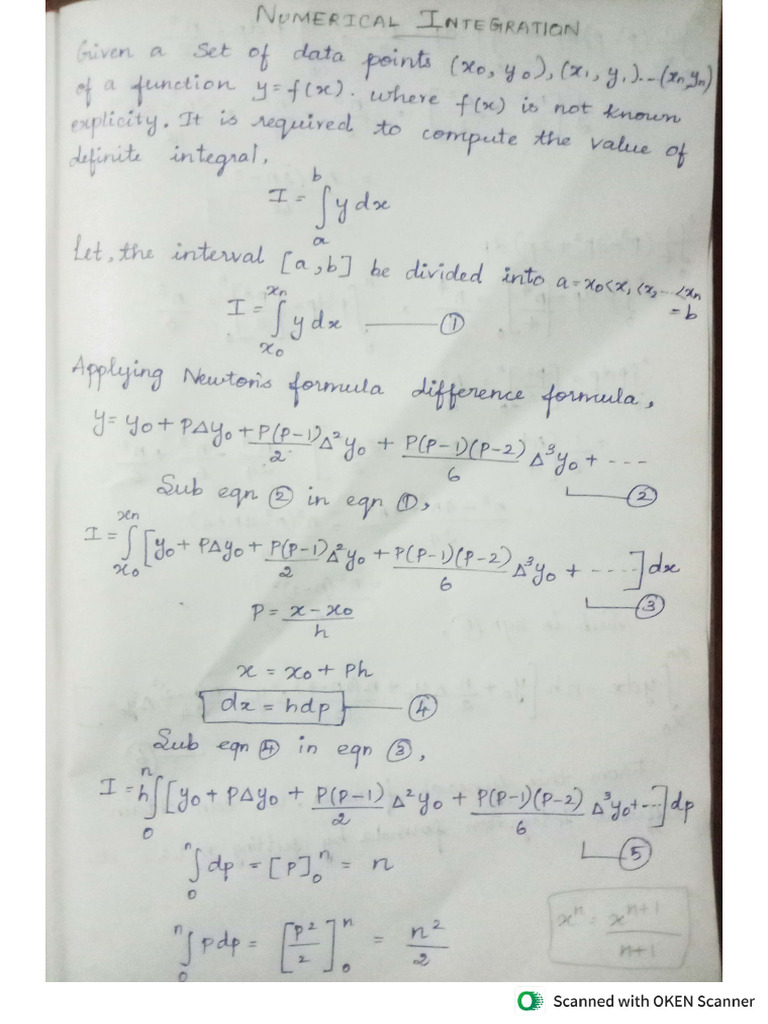 NUMERICAL INTEGRATION
Given a set of data points (x₀, y₀), (x₁, y₁)...(xₙ, yₙ)
of a function y = f(x). where f(x) is not known
explicity. It is required to compute the value of
definite integral.
I = ∫ₐᵇ y dx
Let, the interval [a, b] be divided into a = x₀ < x₁ < x₂ ... < xₙ
= b
I = ∫ₓ₀ˣⁿ y dx —— ①
Applying Newton's formula difference formula,
y = y₀ + PΔy₀ + P(P-1)/2 Δ²y₀ + P(P-1)(P-2)/6 Δ³y₀ + ----
—— ②
Sub eqn ② in eqn ①,
I = ∫ₓ₀ˣⁿ [y₀ + PΔy₀ + P(P-1)/2 Δ²y₀ + P(P-1)(P-2)/6 Δ³y₀ + ----] dx
—— ③
P = x - x₀ / h
x = x₀ + Ph
dx = hdp —— ④
Sub eqn ④ in eqn ③,
I = h∫₀ⁿ [y₀ + PΔy₀ + P(P-1)/2 Δ²y₀ + P(P-1)(P-2)/6 Δ³y₀ + ---] dp
—— ⑤
∫₀ⁿ dp = [P]₀ⁿ = n
∫₀ⁿ pdp = [P²/2]₀ⁿ = n²/2
xⁿ = xⁿ⁺¹/n+1
Scanned with OKEN Scanner